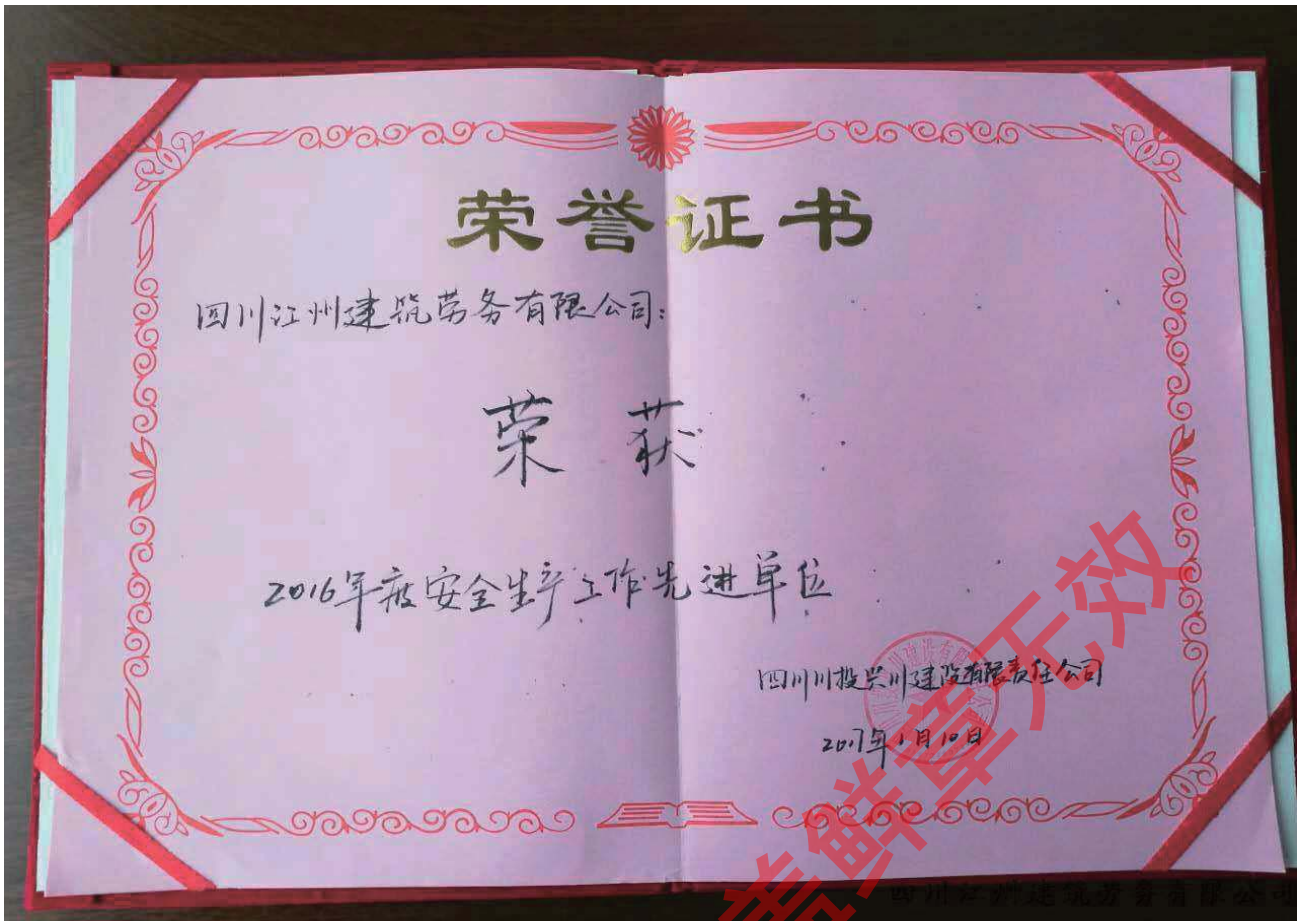 荣誉证书
四川江州建筑劳务有限公司：
荣获
2016年度安全生产工作先进单位
四川川投兴川建设有限责任公司
2017年1月10日
盖鲜章无效
四川江州建筑劳务有限公司